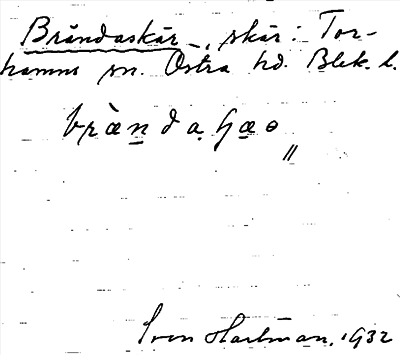 Brändaskär, skär: Tor-
hamns sn. Östra hd. Blek. l.
Sven Hartman, 1932